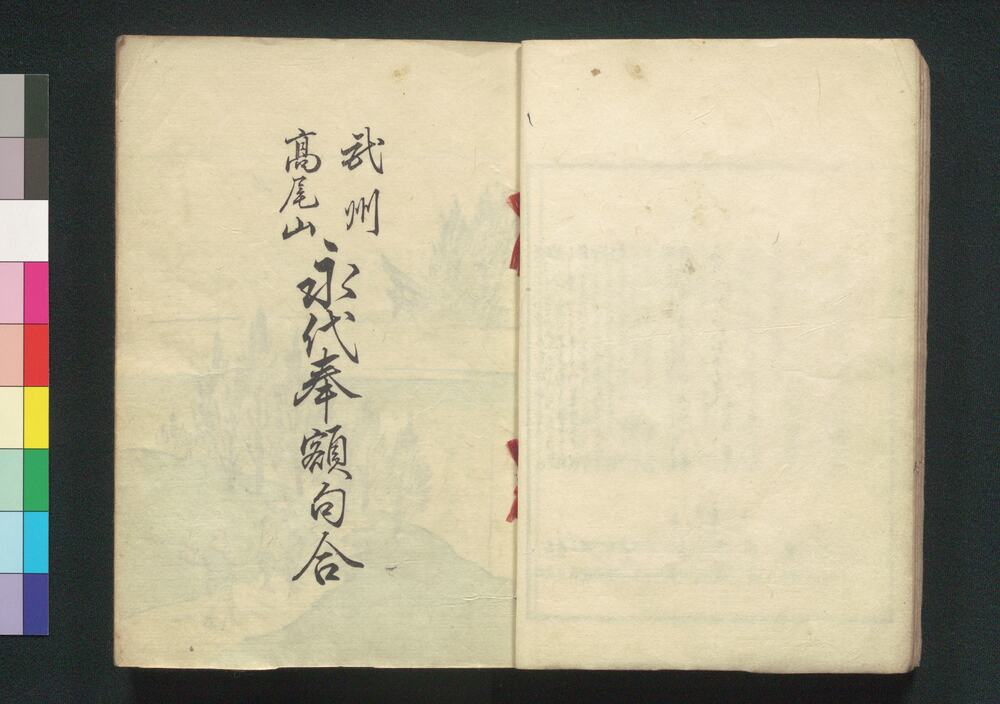 武州
髙尾山
永代奉額句合